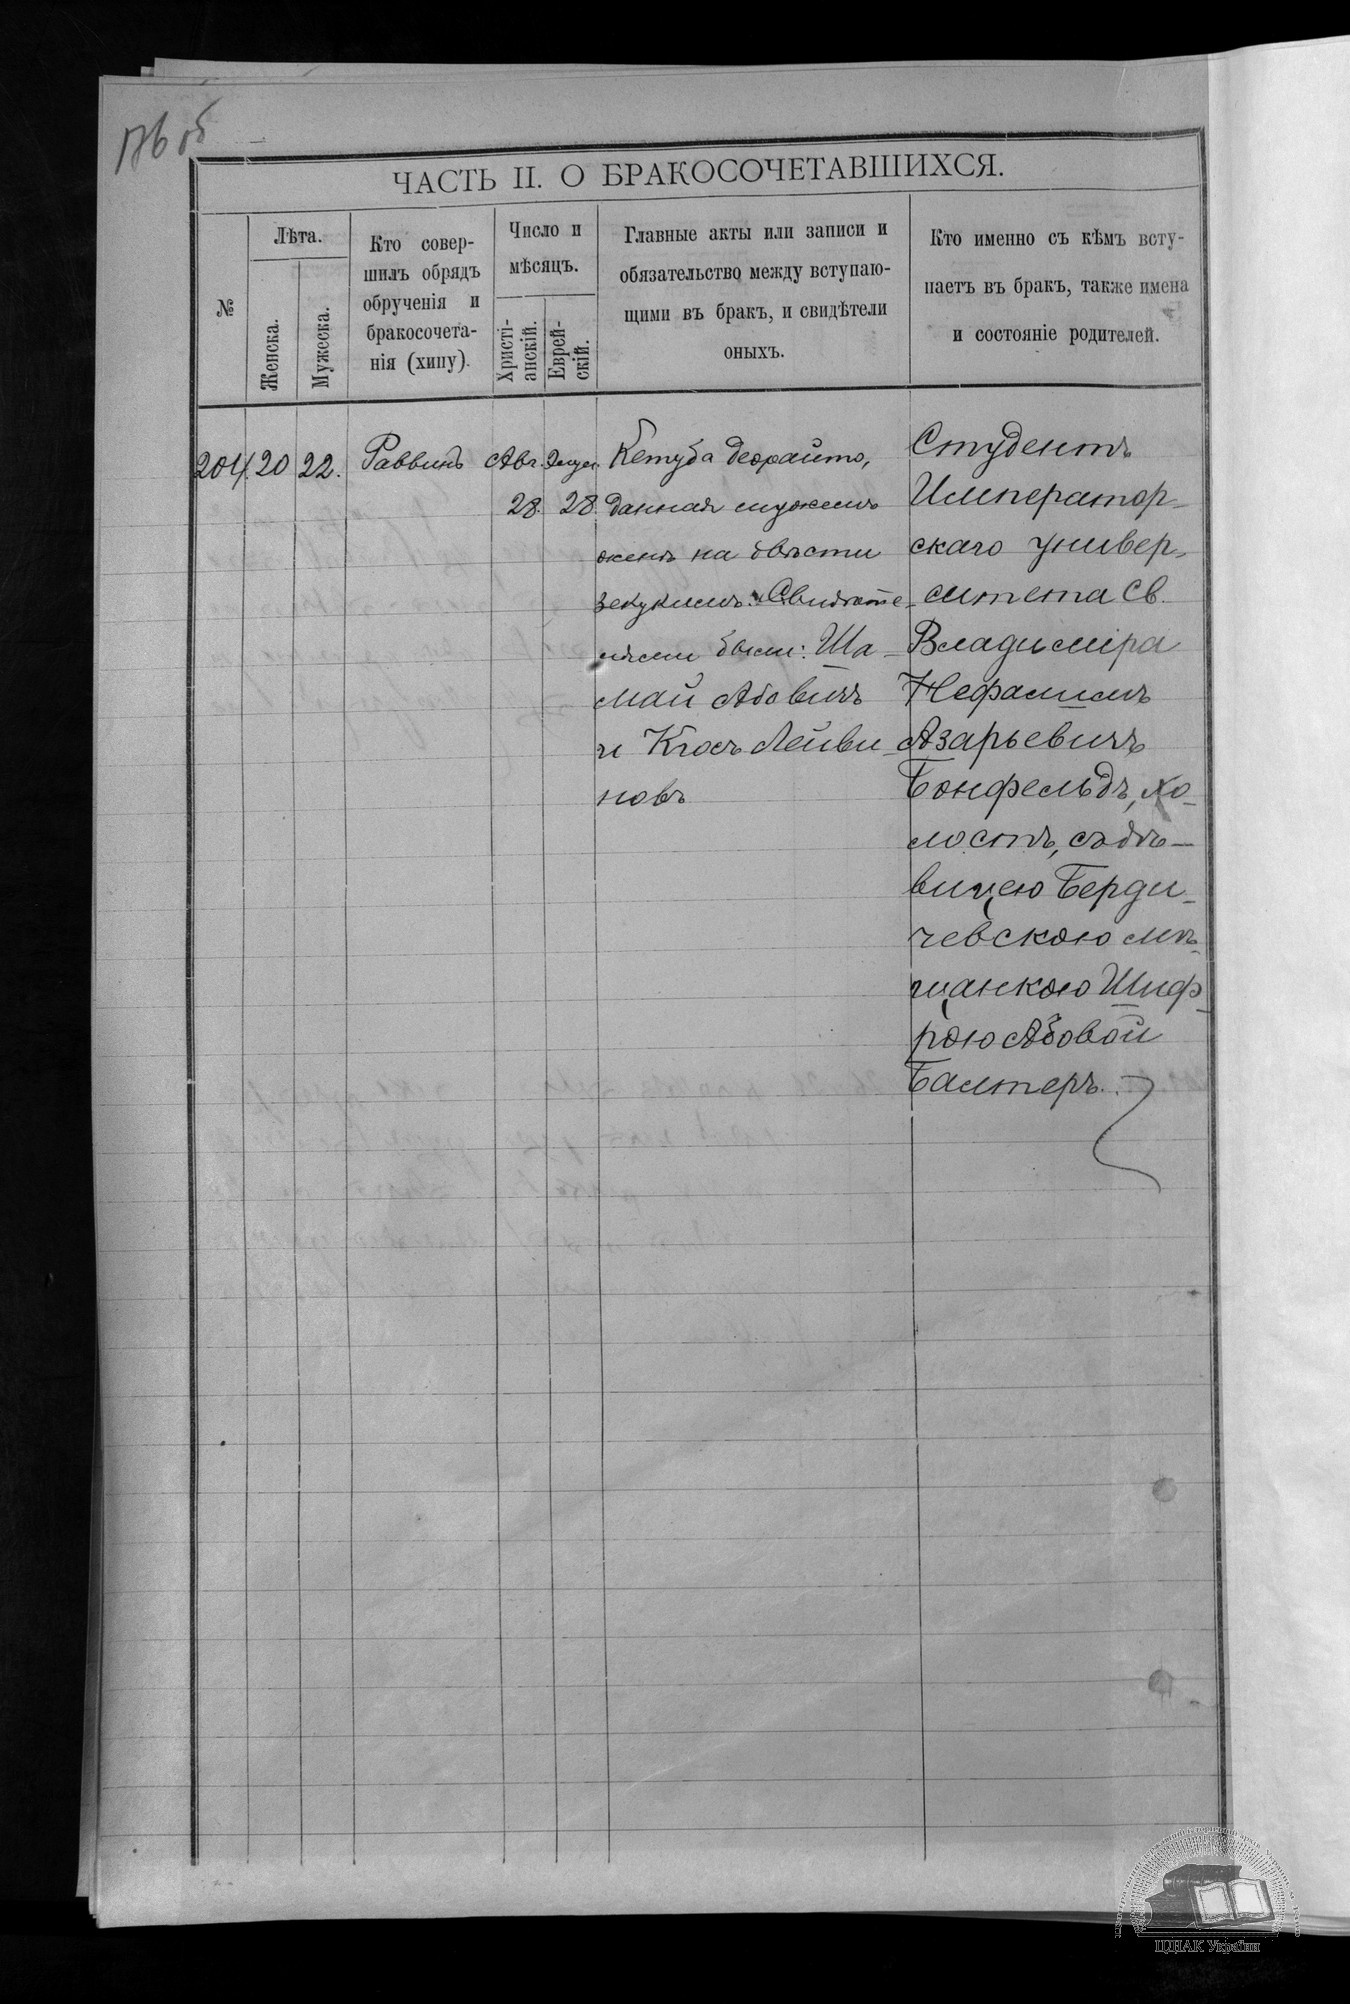 176 об
ЧАСТЬ II. О БРАКОСОЧЕТАВШИХСЯ.
№
Лѣта.
Женска.
Мужеска.
Кто совер-
шилъ обрядъ
обрученія и
бракосочета-
нія (хипу).
Число и
мѣсяцъ.
Христі-
анскій.
Еврей-
скій.
Главные акты или записи и
обязательство между вступаю-
щими въ бракъ, и свидѣтели
оныхъ.
Кто именно съ кѣмъ всту-
паетъ въ бракъ, также имена
и состояніе родителей.
204. 20 22. Раввинъ Авг.
28. 28
Кетуба деорайто,
данная мужемъ
женѣ на двѣсти
зекукимъ. Свидѣте-
лями были: Ша-
май Абовичъ
и Клосъ Лейви-
новъ
Студентъ
Император-
скаго универ-
ситета Св.
Владиміра
Нефталимъ
Азарьевичъ
Бонфельдъ, хо-
лостъ, съ дѣ-
вицею Берди-
чевскою мѣ-
щанкою Шиф-
рою Абовой
Балтеръ.
ЦДІАК України